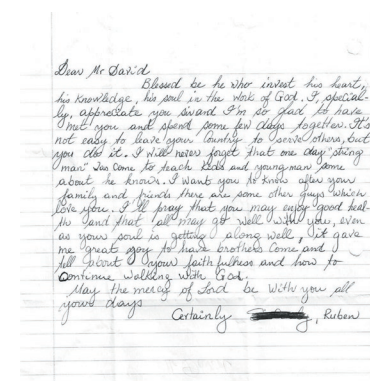 Dear Mr David
Blessed be he who invest his heart,
his knowledge, his soul in the work of God. I, special-
ly, appreciate you and I'm so glad to have
met you and spend some few days together. It's
not easy to leave your Country to serve others, but
you do it. I will never forget that one day "string
man" has come to teach kids and young man some
about he knows. I want you to know after your
family and friends there are some other guys which
love you. I'll pray that you may enjoy good heal-
th and that all may go well with you, even
as your soul is getting along well, it gave
me great goy to have brothers come and
tell about your faithfulness and how to
Continue walking with God.
May the mercy of Lord be with you all
yours days
Certainly Ruben